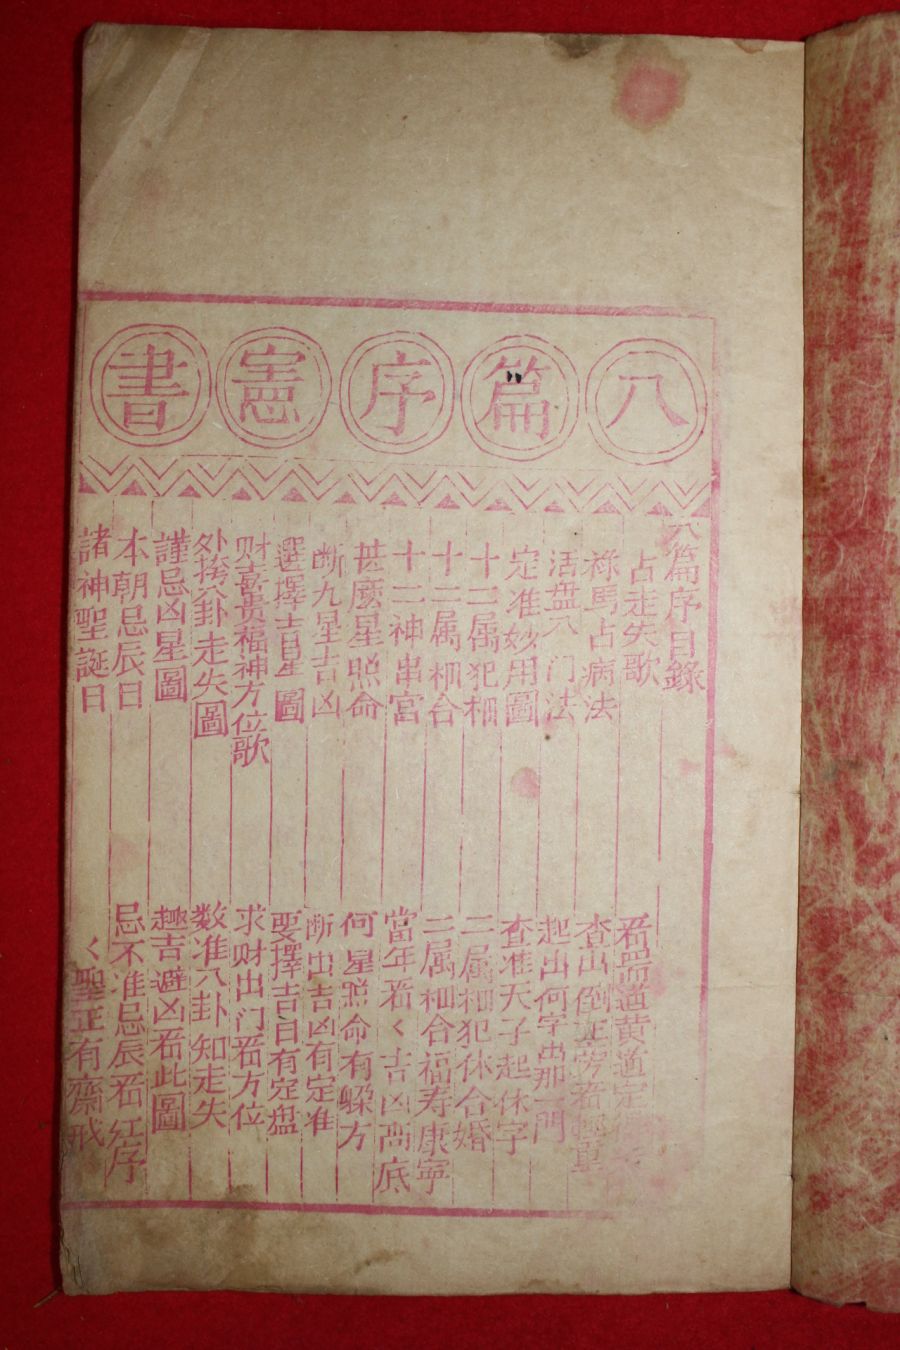 八篇序憲書
八篇序目錄
占走失歌 看黑道黄道定
祿馬占病法 查出倒正旁看
活盤八门法 起出何字出那一門
定准妙用圖 查准天子起休字
十二属犯相 二属相犯休合婚
十二属相合 二属相合福寿康寧
十二神串宮 當年看く吉凶髙底
甚麼星照命 何星照命有躲方
断九星吉凶 断出吉凶有定准
選擇吉星圖 要擇吉日有定盘
财喜贵福神方位歌 求财出门看方位
外挎八卦走失圖 数准八卦知走失
謹忌凶星圖 趣吉避凶看此圖
本朝忌辰日 忌不准忌辰看红序
諸神聖誕日 く聖正有齋戒